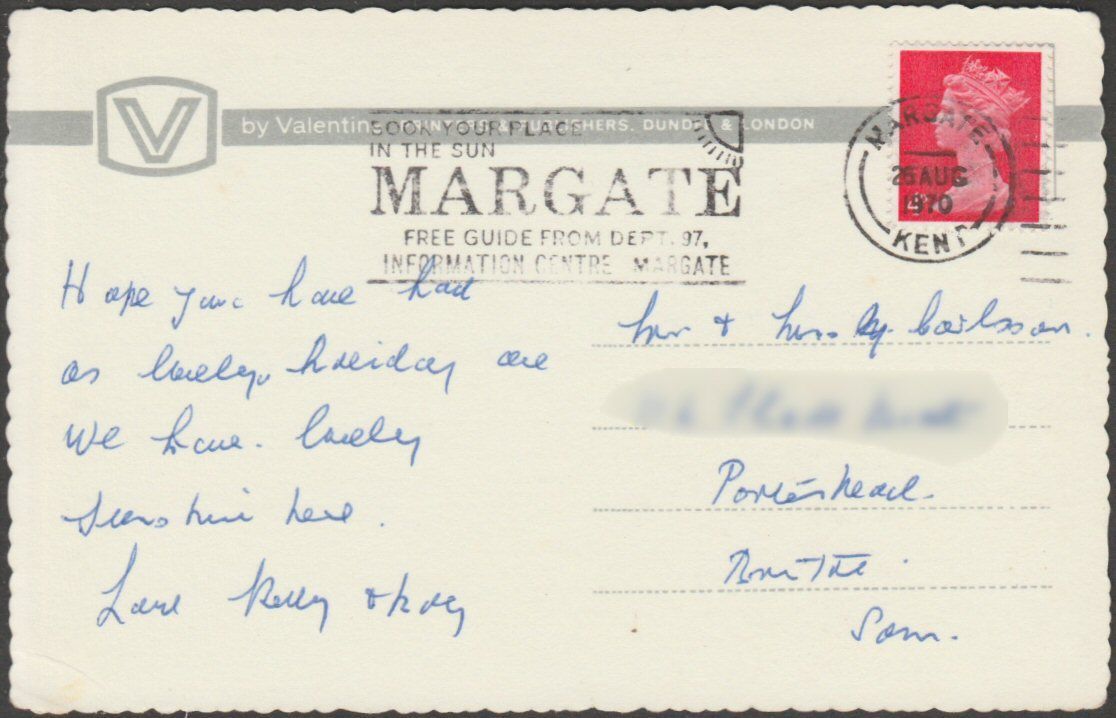 V
by Valentine PRINTERS & PUBLISHERS, DUNDEE & LONDON
BOOK YOUR PLACE
IN THE SUN
MARGATE
FREE GUIDE FROM DEPT. 97,
INFORMATION CENTRE MARGATE
MARGATE
AUG
1970
KENT
Hope you have had
as lovely holiday are
we have. lovely
sunshine here.
Love &
Mr & Mrs
Portishead.
Bristol.
Som.